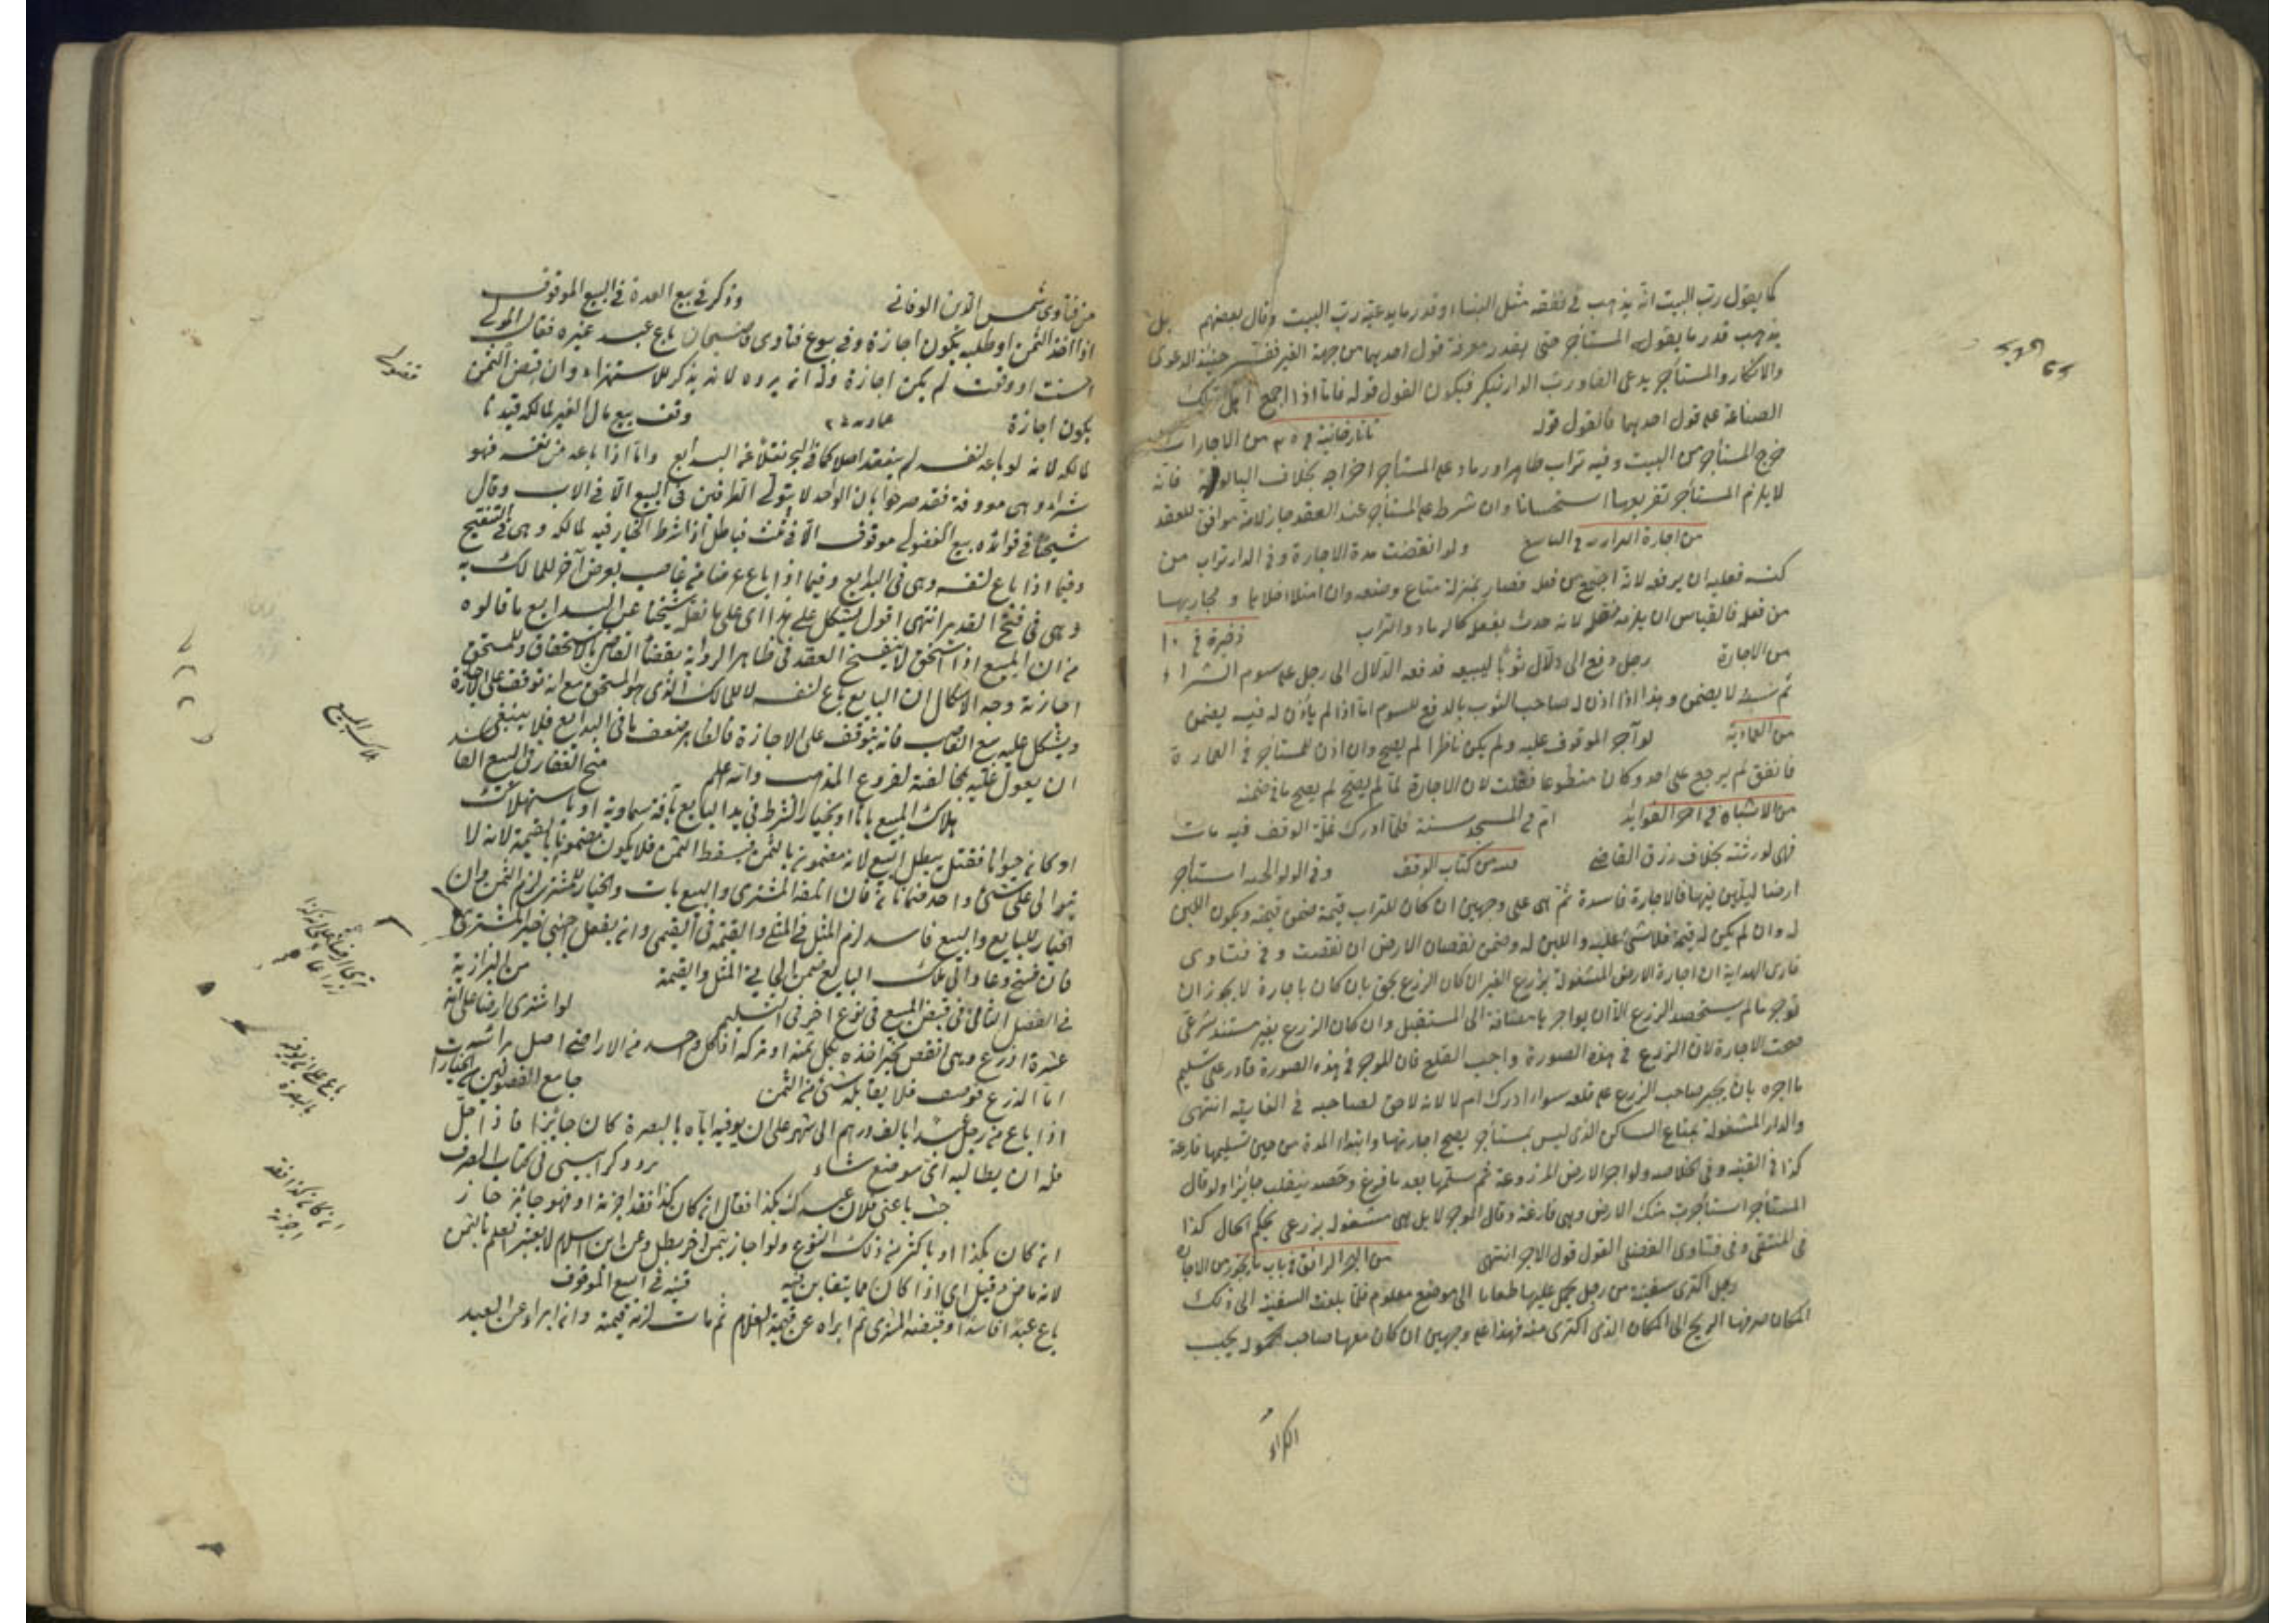 كما يقول رب البيت انه يذهب في نفقة مثل البناء او قدر ما يدعيه رب البيت وقال بعضهم بل
يذهب قدر ما يقول المستأجر حتى يقدر معرفة قول احدهما من جهة الغير حينئذ الدعوى
والانكار والمستأجر يدعى الفا ورب الدار ينكر فيكون القول قوله فاما اذا اجمع اهل تلك
الصناعة على قول احدهما فالقول قوله تاتارخانية من الاجارات
خرج المستأجر من البيت وفيه تراب ظاهر او رماد على المستأجر اخراجه بخلاف البالوعة فانه
لا يلزم المستأجر تفريغها استحسانا وان شرط على المستأجر عند العقد جاز لانه موافق للعقد
من اجارة الدار ولو انقضت مدة الاجارة وفي الدار تراب من
كنسه فعليه ان يرفعه لانه اجتمع من فعله فصار بمنزلة متاع وضعه وان امتلأ خلاها ومجاريها
من فعله فالقياس ان يلزمه نقله لانه حدث بفعله كالرماد والتراب ذخيرة في ١٠
من الاجارة رجل دفع الى دلال ثوبا ليبيعه فدفعه الدلال الى رجل على سوم الشراء
ثم نسيه لا يضمن وهذا اذا اذن له صاحب الثوب بالدفع للسوم اما اذا لم يأذن له فيه يضمن
من العمادية لو آجر الموقوف عليه ولم يكن ناظرا لم يصح وان اذن للمستأجر في العمارة
فانفق لم يرجع على احد وكان متطوعا فقلت لان الاجارة لما لم يصح لم يصح ما في ضمنه
من الاشباه في اخر الفوائد ام في المسجد سنة فلما ادرك غلة الوقف فيه مات
فهى لورثته بخلاف رزق القاضي من كتاب الوقف وفي الولوالجيه استأجر
ارضا ليلبن فيها فالاجارة فاسدة ثم هى على وجهين ان كان للتراب قيمة ضمن قيمته ويكون اللبن
له وان لم يكن له قيمة فلا شئ عليه واللبن له وضمن نقصان الارض ان نقصت وفي فتاوى
قارى الهداية ان اجارة الارض المشغولة بزرع الغير ان كان الزرع بحق بان كان باجارة لا يجوز ان
توجر ما لم يستحصد الزرع الا ان يواجرها مضافة الى المستقبل وان كان الزرع بغير مستند شرعى
صحت الاجارة لان الزرع في هذه الصورة واجب القلع فان الموجر في هذه الصورة قادر على تسليم
ما اجره بان يجبر صاحب الزرع على قلعه سواء ادرك ام لا لانه لا حق لصاحبه في انتهى
والدار المشغولة بمتاع الساكن الذى ليس بمستأجر يصح اجارتها وابتداء المدة من حين تسليمها فارغة
كذا في القنيه وفي الخلاصه ولو اجر الارض المزروعة ثم سلمها بعد ما فرغ وحصد ينقلب جائزا ولو قال
المستأجر استأجرت منك الارض وهى فارغة وقال الموجر لا بل هى مشغولة بزرعى يحكم الحال كذا
فى المنتقى وفى فتاوى الفضلى القول قول الاجر انتهى من البحر الرائق في باب ما يجوز من الاجارة
رجل اكترى سفينة من رجل يحمل عليها طعاما الى موضع معلوم فلما بلغت السفينة الى ذلك
المكان صرفها الريح الى المكان الذى اكترى منه فهذا على وجهين ان كان معها صاحب الحمولة يجب
الكراء
من فتاوى شمس الدين الوفائى وذكر في بيع العدة في البيع الموقوف
اذا اخذ الثمن او طلبه يكون اجازة وفي بيوع فتاوى قاضيخان باع عبد غيره فقال المولى
احسنت او وفقت لم يكن اجازة وله ان يرده لانه يذكر للاستهزاء وان قبض الثمن
يكون اجازة وقف بيع مال الغير لمالكه قيد نا
لمالكه لانه لو باعه لنفسه لم ينعقد اصلا كما في البحر نقلا عن البدايع واما اذا باعه من نفسه فهو
شراء وهى موقوفة فقد صرحوا بان الواحد لا يتولى الطرفين في البيع الا في الاب وقال
شيخنا في فوائده بيع الفضولى موقوف الا في ثلث فباطل اذا شرط الخيار فيه لمالكه وهى في التنقيح
وفيما اذا باع لنفسه وهى في البدايع وفيما اذا باع عرضا من غاصب بعرض آخر للمالك به
وهى في فتح القدير انتهى اقول يشكل على هذا اى على ما نقله شيخنا عن البدايع ما قالوه
من ان المبيع اذا استحق لا ينفسخ العقد في ظاهر الرواية بقضاء القاضى بالاستحقاق وللمستحق
اجازته وجه الاشكال ان البايع باع لنفسه لا للمالك الذى هو المستحق مع انه توقف على الاجازة
ويشكل عليه بيع الغاصب فانه يتوقف على الاجازة فالظاهر ضعف ما في البدايع فلا ينبغى
ان يعول عليه لمخالفته لفروع المذهب والله اعلم منح الغفار في البيع الفا
هلاك المبيع باتا او بخيار الشرط في يد البايع بآفة سماوية او باستهلاك
او كان حيوانا فقتل يبطل البيع لانه مضمون بالثمن فيسقط الثمن فلا يكون مضمونا بالقيمة لانه لا
يتوالى على شئ واحد ضمانان فان اتلفه المشترى والبيع بات والخيار للمشترى لزم الثمن وان
الخيار للبايع والبيع فاسد لزم المثل في المثلى والقيمة في القيمى وان بفعل اجنبى خير المشترى
فان فسخ وعاد الى ملك البايع ضمن الجانى المثل والقيمة من البزازية
في الفصل الثانى في قبض المبيع في نوع اخر في التسليم لو اشترى ارضا على انها
عشرة اذرع وهى انقص يخير اخذه بكل ثمنه او تركه
اما الذرع فوصف فلا يقابله شئ من الثمن جامع الفصولين
اذا باع من رجل عبدا بالف درهم الى شهر على ان يوفيه اياه بالبصرة كان جائزا فاذا حل
فله ان يطالبه اى موضع شاء
باعنى فلان عبدك بكذا فقال ان كان كذا فقد اجزته او فهو جائز جاز
ان كان بكذا او باكثر من ذلك النوع ولو اجاز بثمن آخر يبطل وعن ابن سلام لا يعتبر العلم بالثمن
لانه ماض وقيل اى اذا كان مما يتغابن فيه قنيه في البيع الموقوف
باع عبدا فاسدا وقبضه المشترى ثم ابراه عن قيمة الغلام ثم مات لزمه قيمته وان ابراه عن العبد
فضولى
هلاك المبيع
باع على ان يوفيه
بالبصرة
ان كان كذا فقد
اجزته